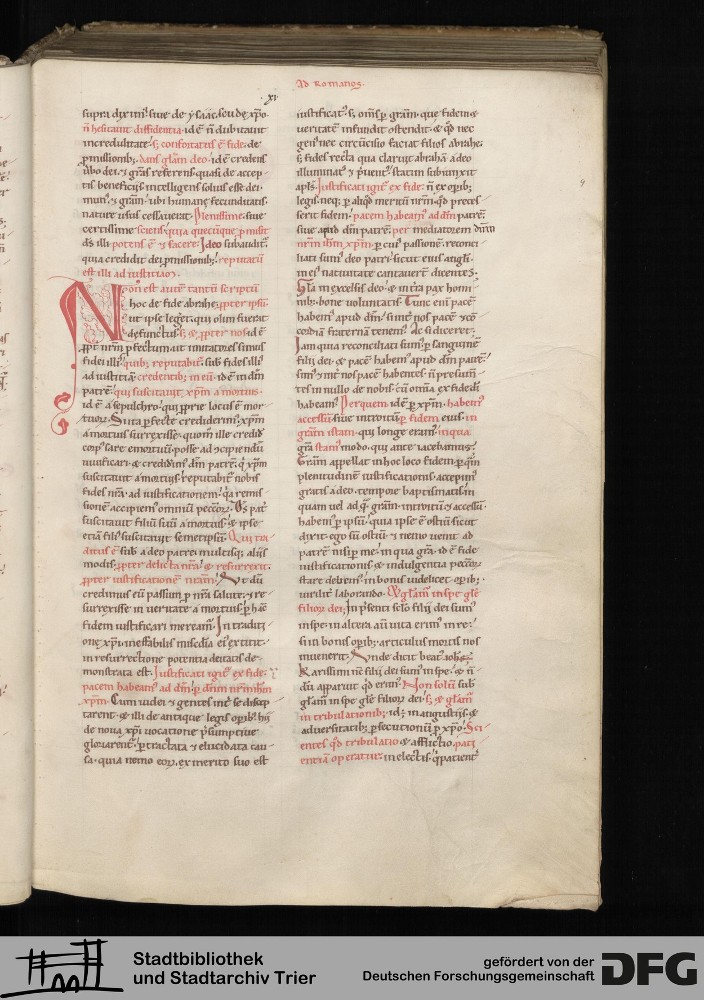 Ad Romanos.
.xi.
supra diximꝰ. siue de ysaac. seu de xp̄o.
n̄ hesitauit diffidentia. id ē n̄ dubitauit
incredulitate. s; confortatus ē fide. de
p̄missionib;. dans gl̄am deo. id ē credens
deo. & gr̄as referens quasi de accep
tis beneficijs. intelligens solius esse dei
munꝰ & gr̄am. ubi humane fecunditatis
nature usus cessauerit. Plenissime. siue
certissime sciens. quia quecunque p̄misit
d̄s illi. potens ē & facere. Ideo subauditꝰ.
quia credidit dei p̄missionib;. reputatū
est illi ad iusticiam.
Non est aute tantū scriptū
hoc de fide abrahe. p̄pter ipsū
ut ipse leget. qui olim fuerat
defunctus. s; & p̄pter nos. id ē
p̄pt nr̄m p̄fectum. ut imitatores simus
fidei illiꝰ. quib; reputabitꝰ. sub fides illiꝰ
ad iusticiā. credentib; in eū. id ē in dm̄
patrē. qui suscitauit xp̄m a mortuis.
id ē a sepulchro. qui p̄prie locus ē mor
tuoꝝ. Si uta p̄fecte crediderimꝰ. xp̄m
a mortuis surrexisse. quom̄ ille credid̄
corpꝰ sare emortuū. posse ad
uiuificari. & credidimꝰ dm̄ patrē. q̄ xp̄m
suscitauit a mortuis. reputabitꝰ nobis
fides nr̄a. ad iustificationem. q̄a remis
sionē accipiemꝰ omniū peccoꝝ. D̄s pat̄
suscitauit filiū suū a mortuis. & ipse
etiā filiꝰ suscitauit semetipsū. Qui tra
ditus ē. sub a deo patre. multisq; aliis
modis. p̄pter delicta nr̄a. & resurrexit
p̄pter iustificationē nr̄am. Ut dū
credimus eū passum p̄ nr̄a salute. & re
surrexisse in ueritate a mortuis. p̄ hāc
fidem iustificari mereamꝰ. In traditi
one xp̄i. ineffabilis misc̄dia ei extitit.
in resurrectione potentia deitatis de
monstrata est. Justificati igit̄ ex fide.
pacem habeamꝰ ad dm̄. p̄ dnm̄ nr̄m ih̄m
xp̄m. Cum iudei & gentes int̄ se discep
tarent. & illi de antique legis opib;. hij
de noua xp̄i uocatione p̄sumptiue
gloriarent̄. p̄tractata & elucidata cau
sa. quia nemo eoꝝ. ex merito suo est
iustificatꝰ. s; oms̄ p̄ gr̄am. que fidem &
ueritatē infundit ostendit. & qd̄ nec
genꝰ nec circūcisio faciat filios abrahe.
s; fides recta qua claruit abrahā a deo
illuminatꝰ & p̄uentꝰ. statim subiunxit
apl̄s. Justificati igit̄ ex fide. n̄ ex opib;
legis. neq; p̄ aliqd̄ meritū nr̄m. qd̄ preces
serit fidem. pacem habeamꝰ ad dm̄ patrē.
siue apud dm̄ patrē. per mediatorem dnm̄
nr̄m ih̄m xp̄m. p̄ cuiꝰ passionē reconci
liati sumꝰ deo patri. sicut eius angli
in eiꝰ natiuitate cantauert̄ dicentes.
Gl̄a in excelsis deo. & in t̄ra pax homi
nib;. bone uoluntatis. Tunc eni pacē
habemꝰ apud dm̄. si int̄ nos pacē & cō
cordiā fraternā tenemꝰ. Ac si diceret.
Jam quia reconciliati sumꝰ p̄ sanguinē
filij dei. & pacē habemꝰ apud dm̄ patrē.
simꝰ & int̄ nos pacē habentes. n̄ presum
tes in nullo de nobis. cū omia ex fide di
habeamꝰ. Per quem. id ē p̄ xp̄m. habemꝰ
accessū. siue introitū. p̄ fidem eius. in
gr̄am istam. qui longe eramꝰ. in qua
gr̄a stamꝰ modo. qui ante iacebamus.
Gr̄am appellat in hoc loco fidem. p̄ qm̄
plenitudinē iustificationis accepimꝰ
gratis a deo. tempore baptismatis. in
quam uel ad q̄. gr̄am. introitū & accessū
habemꝰ p̄ ipsū. quia ipse ē ostiū. sicut
dixit. ego sū ostiū. & nemo uenit ad
patrē nisi p̄ me. in qua gr̄a. id ē fide
iustificationis & indulgentia peccoꝝ.
stare debemꝰ. in bonis uidelicet opib;.
uirilit̄ laborando. Et gl̄amꝰ in spe gl̄e
filioꝝ dei. In p̄senti sclo filij dei sumꝰ
in spe. in altera aū uita erimꝰ in re.
si in bonis opib;. articulus mortis nos
inuenerit. Unde dicit beatꝰ ioh̄s.
Karissimi nc̄ filij dei sumꝰ in spe. & n̄
dū apparuit qd̄ erimꝰ. Non solū sub
gl̄amꝰ in spe gl̄e filioꝝ dei. s; & gl̄amꝰ
in tribulationib;. id ; in angustijs &
aduersitatib;. p̄secutionū p̄ xp̄o. Sci
entes qd̄ tribulatio & afflictio. pati
entiā operatur. in electis. q̄ patient̄
9
Stadtbibliothek
und Stadtarchiv Trier
gefördert von der
Deutschen Forschungsgemeinschaft
DFG